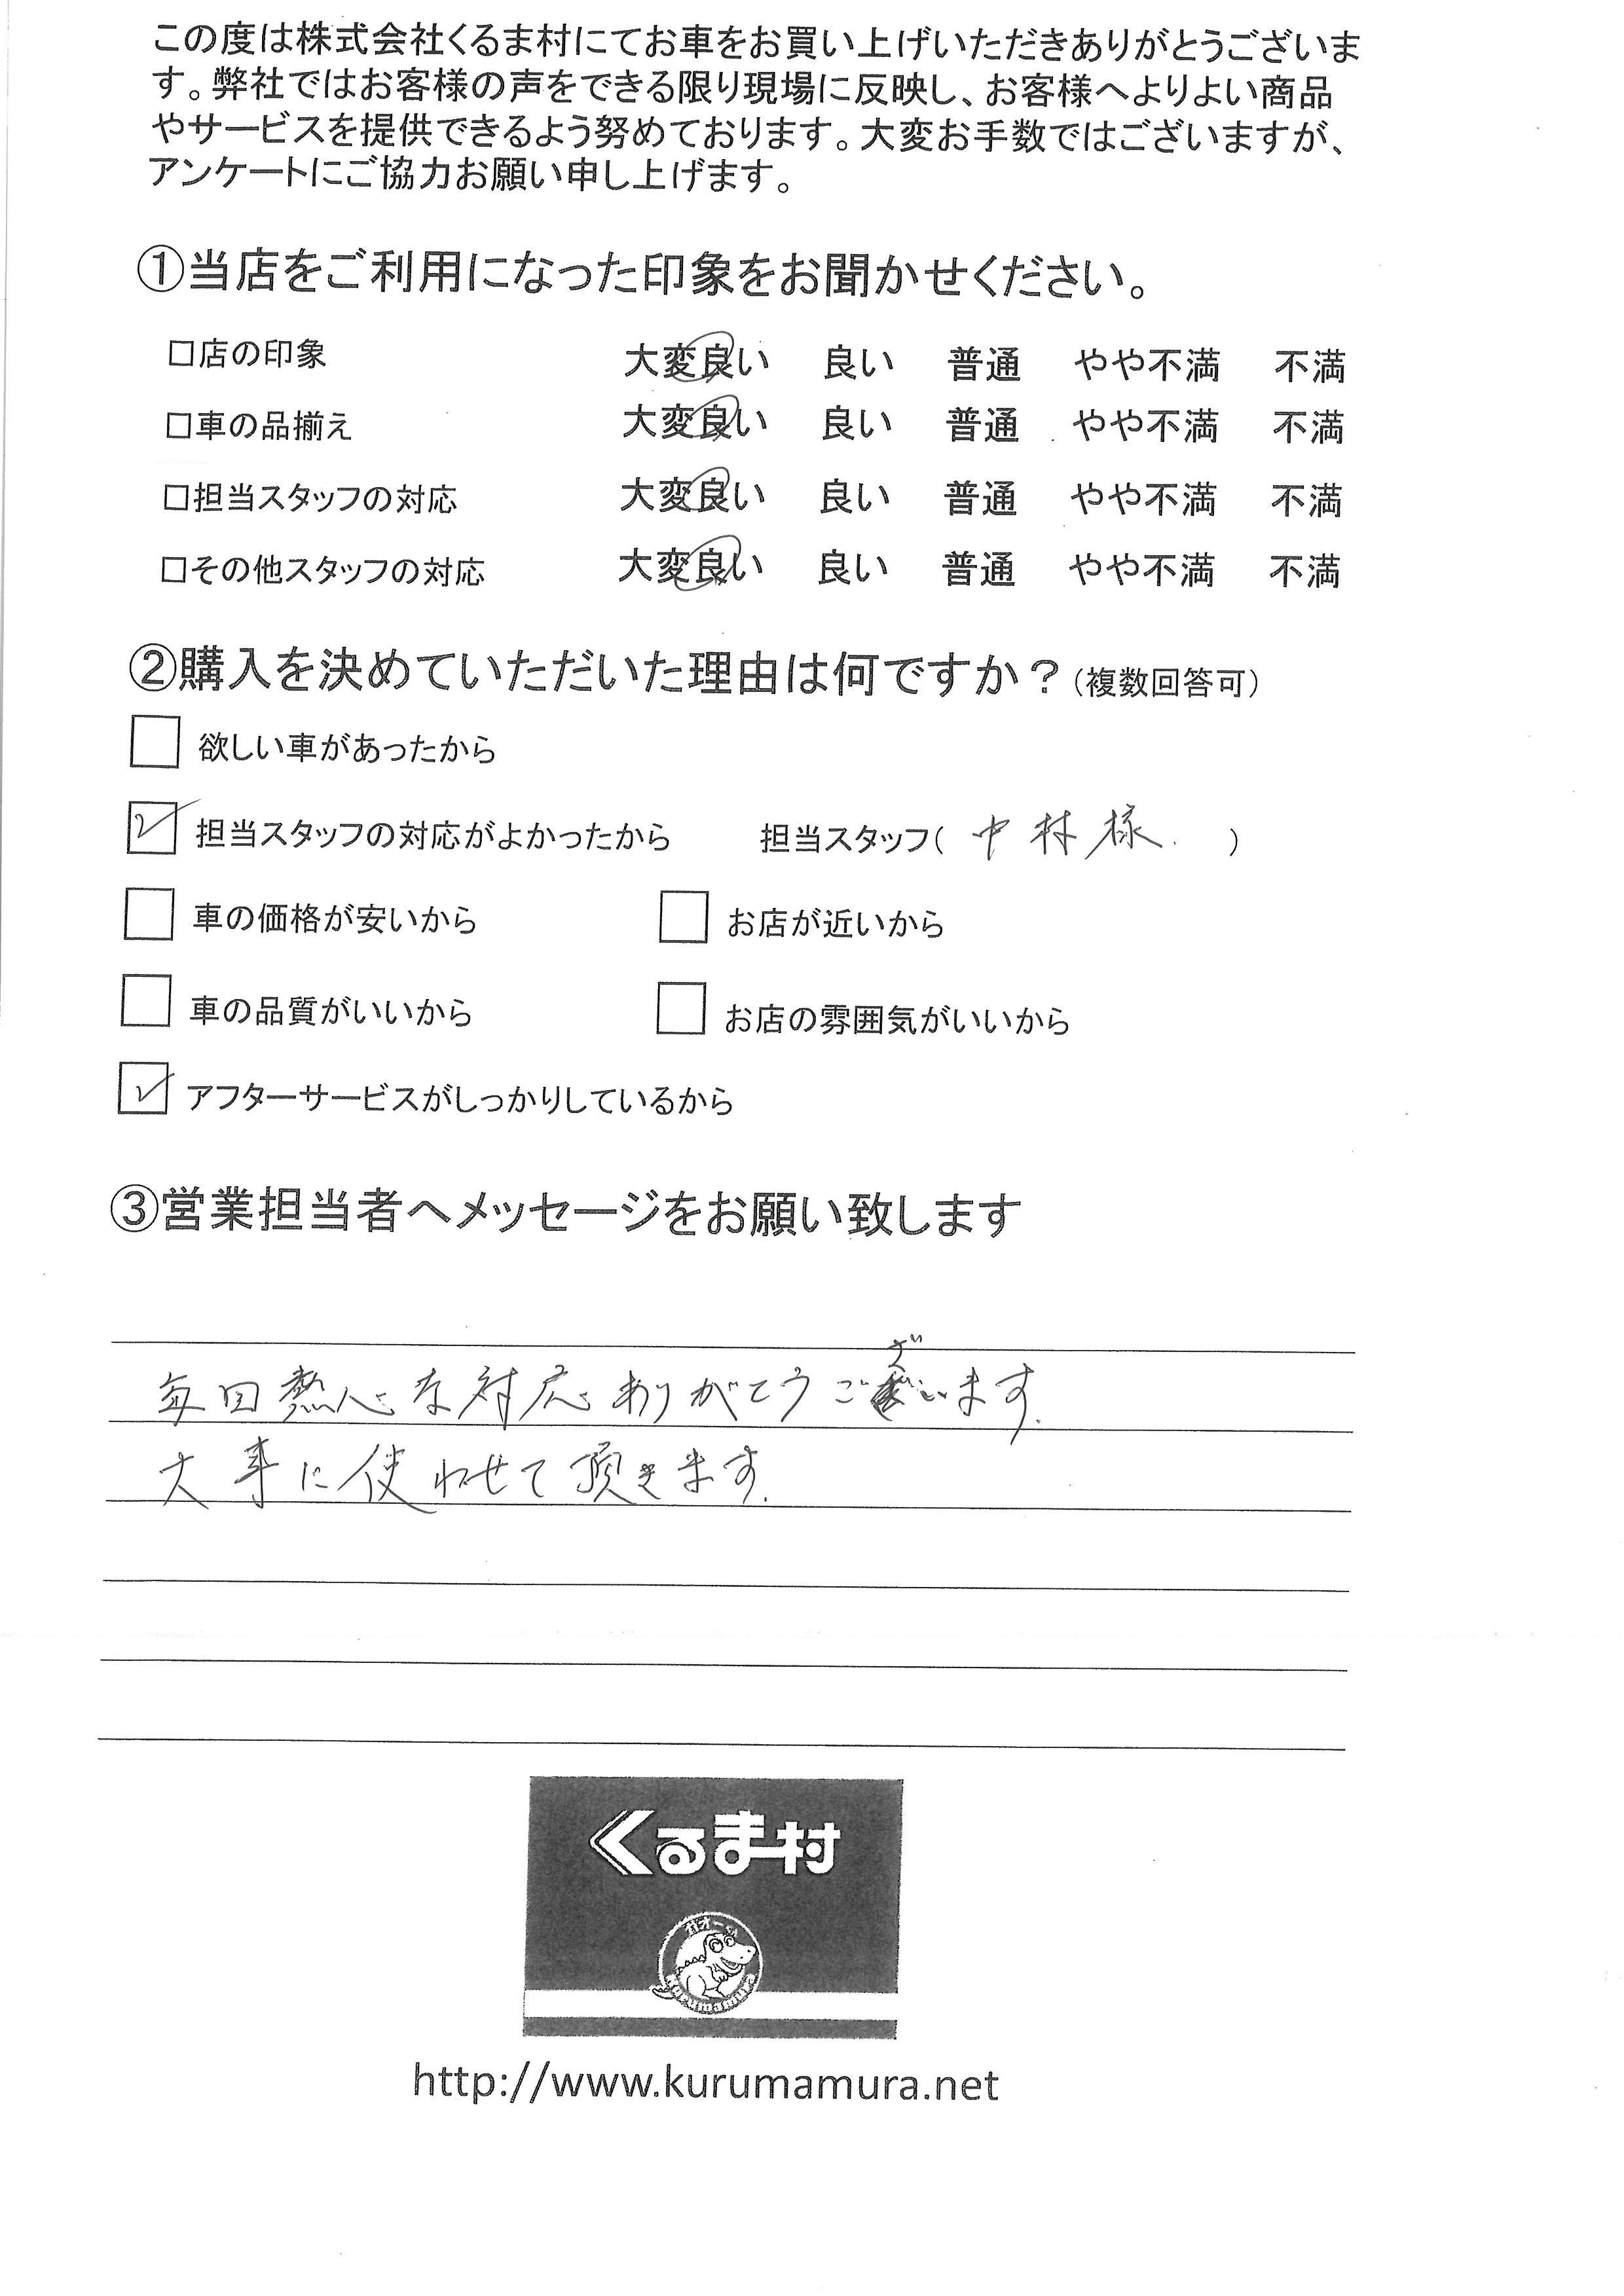 この度は株式会社くるま村にてお車をお買い上げいただきありがとうございま
す。弊社ではお客様の声をできる限り現場に反映し、お客様へよりよい商品
やサービスを提供できるよう努めております。大変お手数ではございますが、
アンケートにご協力お願い申し上げます。
①当店をご利用になった印象をお聞かせください。
□店の印象 大変良い 良い 普通 やや不満 不満
□車の品揃え 大変良い 良い 普通 やや不満 不満
□担当スタッフの対応 大変良い 良い 普通 やや不満 不満
□その他スタッフの対応 大変良い 良い 普通 やや不満 不満
②購入を決めていただいた理由は何ですか？（複数回答可）
欲しい車があったから
担当スタッフの対応がよかったから 担当スタッフ（ 中林様 ）
車の価格が安いから お店が近いから
車の品質がいいから お店の雰囲気がいいから
アフターサービスがしっかりしているから
③営業担当者へメッセージをお願い致します
毎回熱心な対応ありがとうございます.
大事に使わせて頂きます.
くるま村
http://www.kurumamura.net